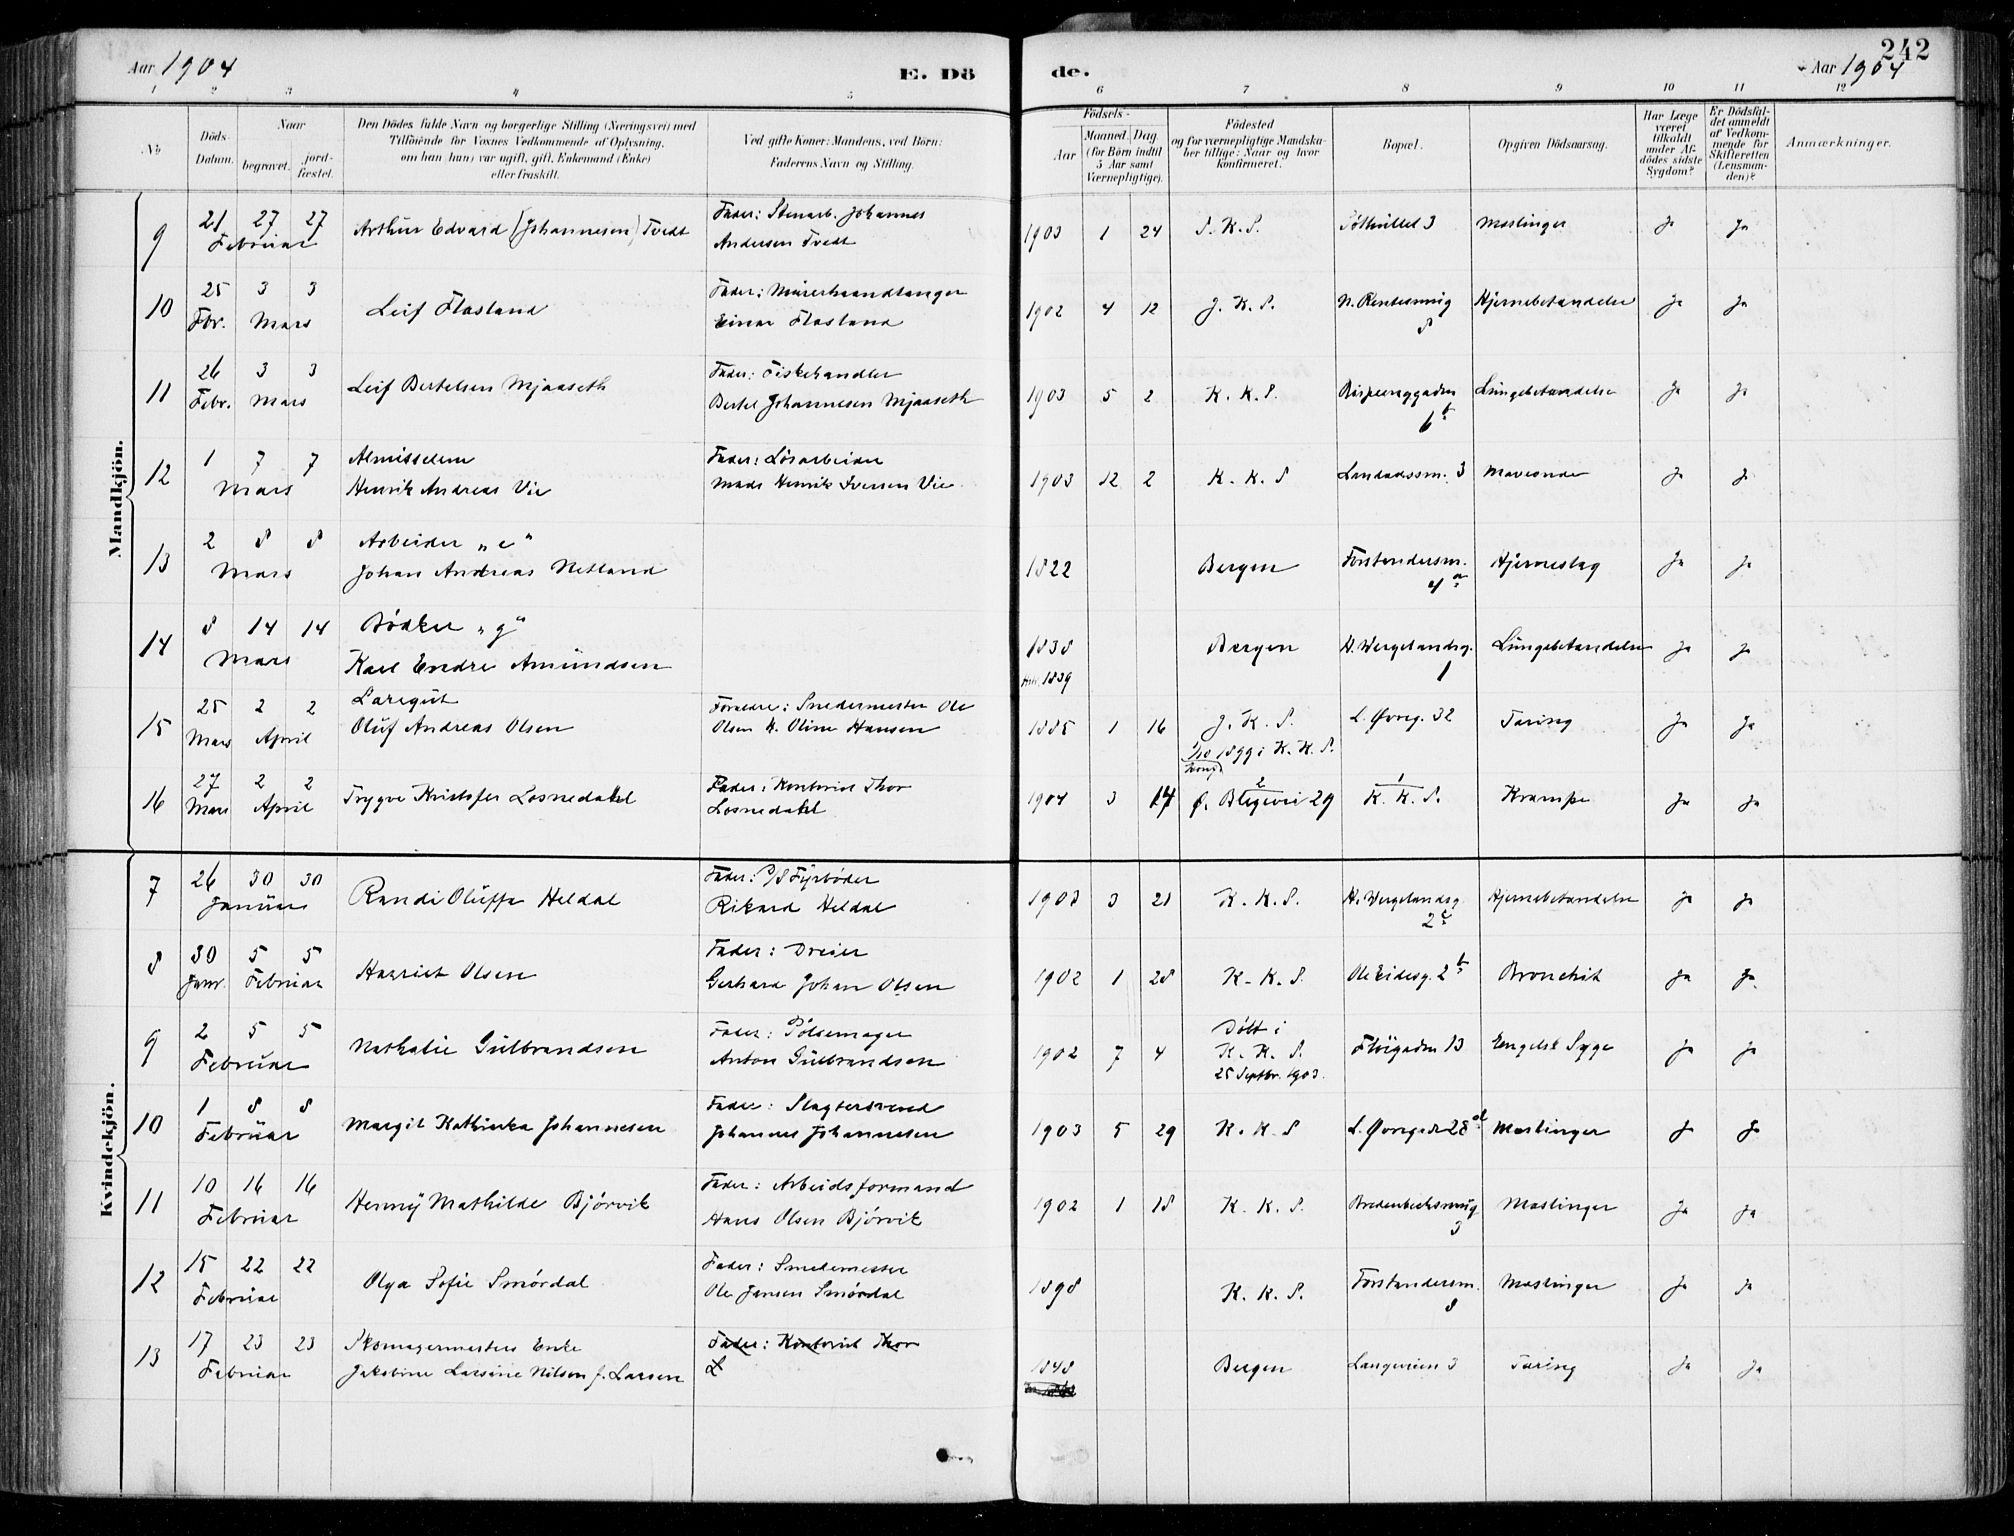 242
Aar 1904
E. Dö
de.
Aar 1904
1 2 3 4 5 6 7 8 9 10 11 12
No.
Döds Datum.
Naar
begravet.
jordfæstet.
Den Dödes fulde Navn og borgerlige Stilling (Næringsvei) med
Tilföiende for Voxnes Vedkommende af Oplysning,
om han (hun) var ugift, gift, Enkemand (Enke)
eller fraskilt.
Ved gifte Koner: Mandens, ved Börn:
Faderens Navn og Stilling.
Födsels-
Aar
Maaned. Dag.
(for Börn indtil
5 Aar samt
Værnepligtige).
Födested
og for værnepligtige Mandskaber tillige: Naar og hvor
konfirmeret.
Bopæl.
Opgiven Dödsaarsag.
Har Læge været tilkaldt under Afdödes sidste Sygdom?
Er Dödsfaldet anmeldt af Vedkommende for Skifteretten (Lensmanden)?
Anmærkninger.
Mandkjön.
9 21 27 27 Februar Arthur Edvard (Johannesen) Tvedt Fader: Stenarb. Johannes Andersen Tvedt 1903 1 24 S. K. S. 3 Meslinger Ja Ja
10 25 Fbr. 3 3 Mars Leif Flasland Fader: Murerhaandlanger Einar Flasland 1902 4 12 J. K. S. 8 Hjernebetændelse Ja Ja
11 26 Febr. 3 3 Mars Leif Bertelsen Mjaaseth Fader: Fiskehandler Bertel Johannesen Mjaaseth 1903 5 2 K. K. S. 6 b Lungebetændelse Ja Ja
12 1 7 7 Mars Almisselem Henrik Andreas Vie Fader: Løsarbeider Mads Henrik Iversen Vie 1903 12 2 K. K. S 3 Maveonde Ja Ja
13 2 8 8 Mars Arbeider „e" Johan Andreas Netland 1822 Bergen Forstandersm. 4 a Hjerneslag Ja Ja
14 8 14 14 Mars Bødker „g" Karl Endre Amundsen 1838 1839 Bergen H. Wergelandsg. 1 Lungebetændelse Ja Ja
15 25 Mars 2 2 April Læregut Oluf Andreas Olsen Forældre: Smedermester Ole Olsen H. Oline Hansen 1885 1 16 J. K. S. 1/10 1899 i K. K. S. L. Øvreg. 32 Tæring Ja Ja
16 27 Mars 2 2 April Trygve Kristofer Losnedahl Fader: Kontorist Thor Losnedahl 1904 3 14 2 Ø. Blegevei 29 1 K. K. S. Krampe Ja Ja
Kvindekjön.
7 26 30 30 Januar Randi Oluffa Heldal Fader: P/S Fyrbøder Rikard Heldal 1903 3 21 K. K. S. H. Wergelandsg. 2 Hjernebetændelse Ja Ja
8 30 Janr. 5 5 Februar Harriet Olsen Fader: Dreier Gerhard Johan Olsen 1902 1 28 K. K. S. Ole Eidesg. 2 b Bronchit Ja Ja.
9 2 5 5 Februar Nathalie Gulbrandsen Fader: Pølsemager Anton Gulbrandsen 1902 7 4 Døbt i K. K. S. 25 Septbr. 1903. 13 Engelsk Syge Ja Ja
10 1 8 8 Februar Margit Kathinka Johannesen Fader: Slagtersvend Johannes Johannesen 1903 5 29 K. K. S L. Øvregade 28 d Meslinger Ja Ja
11 10 16 16 Februar Henny Mathilde Bjørvik Fader: Arbeidsformand Hans Olsen Bjørvik 1902 1 18 K. K. S. Bredenbecksmug 3 Meslinger Ja Ja
12 15 22 22 Februar Olga Sofie Smørdal Fader: Smedemester Ole Jansen Smørdal 1898 K. K. S. Forstandersm. 8 Meslinger Ja Ja
13 17 23 23 Februar Skomagermesters Enke Jakobine Larsine Nilsen f. Larsen Fader: Kontorist Thor L 1848 Bergen Langeveien 3 Tæring Ja Ja